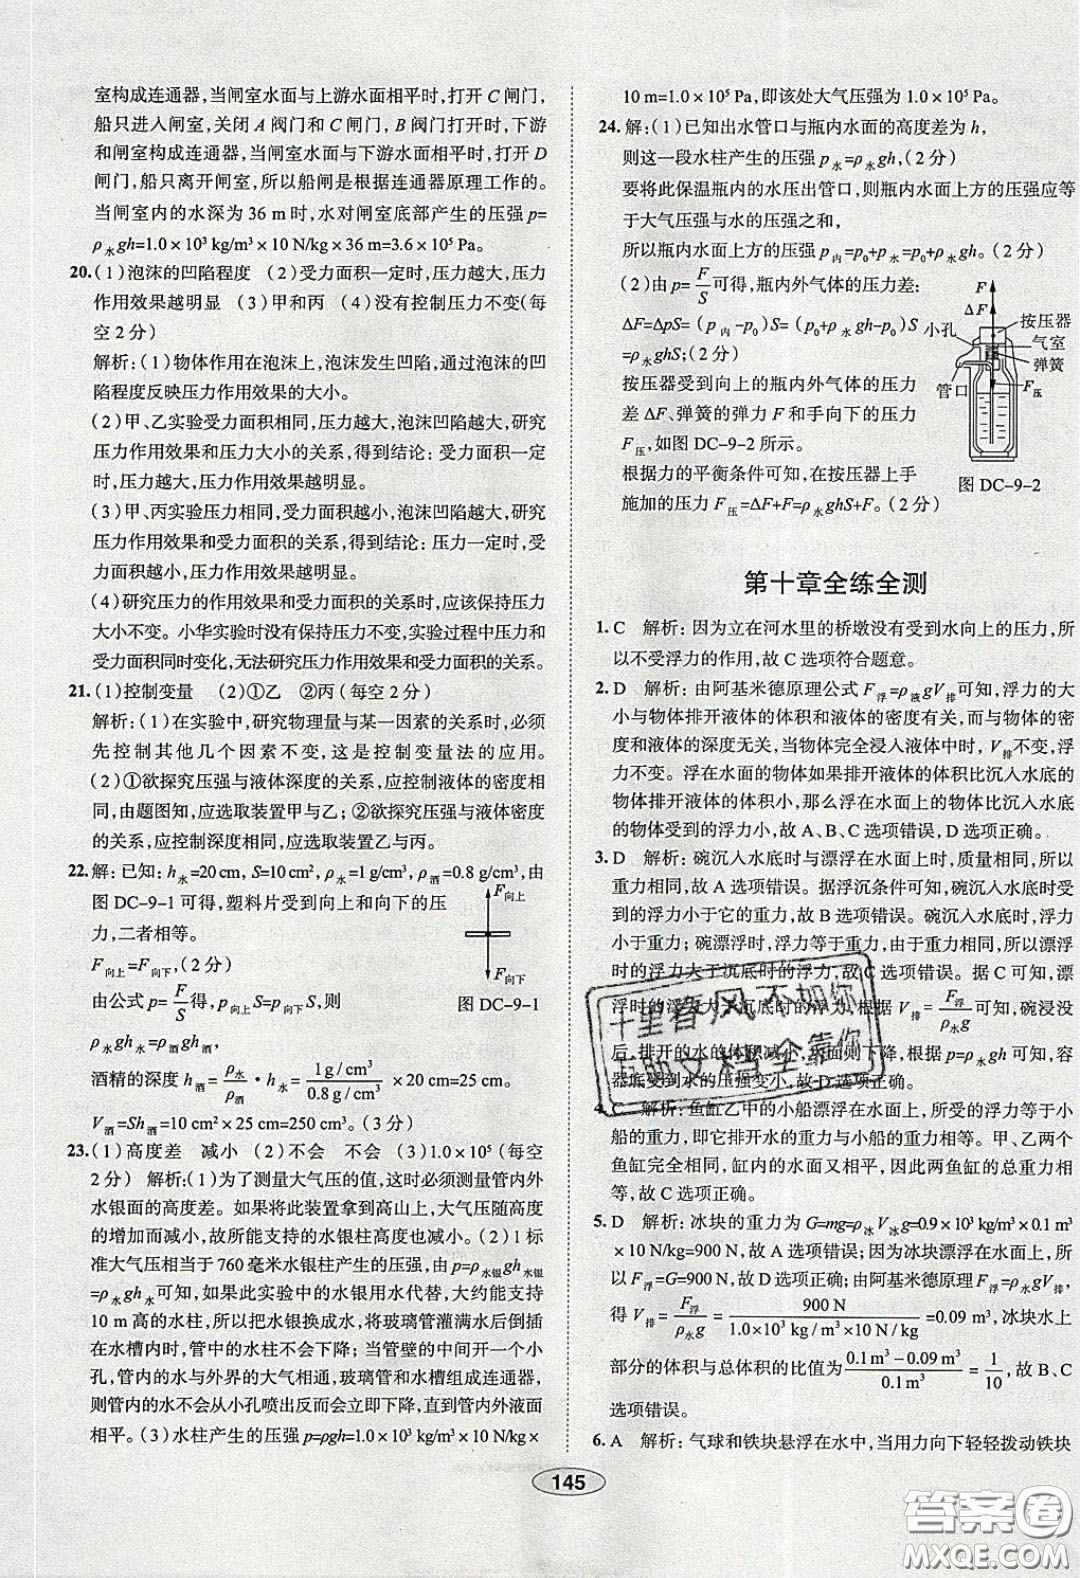 室构成连通器,当闸室水面与上游水面相平时,打开 C 闸门,
船只进入闸室,关闭 A 阀门和 C 闸门,B 阀门打开时,下游
和闸室构成连通器,当闸室水面与下游水面相平时,打开 D
闸门,船只离开闸室,所以船闸是根据连通器原理工作的。
当闸室内的水深为 36 m 时,水对闸室底部产生的压强 p=
ρ水gh=1.0×10³ kg/m³×10 N/kg×36 m=3.6×10⁵ Pa。
20.(1)泡沫的凹陷程度 (2)受力面积一定时,压力越大,压力
作用效果越明显 (3)甲和丙 (4)没有控制压力不变(每
空 2 分)
解析:(1)物体作用在泡沫上,泡沫发生凹陷,通过泡沫的凹
陷程度反映压力作用效果的大小。
(2)甲、乙实验受力面积相同,压力越大,泡沫凹陷越大,研究
压力作用效果和压力大小的关系,得到结论:受力面积一定
时,压力越大,压力作用效果越明显。
(3)甲、丙实验压力相同,受力面积越小,泡沫凹陷越大,研究
压力作用效果和受力面积的关系,得到结论:压力一定时,受
力面积越小,压力作用效果越明显。
(4)研究压力的作用效果和受力面积的关系时,应该保持压力
大小不变。小华实验时没有保持压力不变,实验过程中压力和
受力面积同时变化,无法研究压力作用效果和受力面积的关系。
21.(1)控制变量 (2)①乙 ②丙(每空 2 分)
解析:(1)在实验中,研究物理量与某一因素的关系时,必须
先控制其他几个因素不变,这是控制变量法的应用。
(2)①欲探究压强与液体深度的关系,应控制液体的密度相同,
由题图知,应选取装置甲与乙;②欲探究压强与液体密度
的关系,应控制深度相同,应选取装置乙与丙。
22.解:已知:h水=20 cm,S=10 cm²,ρ水=1 g/cm³,ρ酒=0.8 g/cm³,由
图 DC-9-1 可得,塑料片受到向上和向下的压
力,二者相等。
F向上=F向下,(2 分)
由公式 p=F/S得,p向上S=p向下S,则
ρ水gh水=ρ酒gh酒,
酒精的深度 h酒=ρ水/ρ酒·h水=1 g/cm³/0.8 g/cm³×20 cm=25 cm,
V酒=Sh酒=10 cm²×25 cm=250 cm³。(3 分)
F向上
F向下
图 DC-9-1
23.(1)高度差 减小 (2)不会 不会 (3)1.0×10⁵(每空
2 分) 解析:(1)为了测量大气压的值,这时必须测量管内外
水银面的高度差。如果将此装置拿到高山上,大气压随高度
的增加而减小,故所能支持的水银柱高度减小。(2)1 标
准大气压相当于 760 毫米水银柱产生的压强,由 p=ρ水银gh水银
=ρ水gh水可知,如果此实验中的水银用水代替,大约能支持
10 m 高的水柱,所以把水银换成水,将玻璃管灌满水后倒立
在水槽内时,管中的水柱不会下降;当管壁的中间开一个小
孔,管内的水与外界的大气相通,玻璃管和水槽组成连通器,
则管内的水不会从小孔喷出反而会立即下降,直至内外液面
相平。(3)水柱产生的压强 p=ρgh=1.0×10³ kg/m³×10 N/kg×
10 m=1.0×10⁵ Pa,即该处大气压强为 1.0×10⁵ Pa。
24.解:(1)已知出水管口与瓶内水面的高度差为 h,
则这一段水柱产生的压强 p水=ρ水gh,(2 分)
要将此保温瓶内的水压出管口,则瓶内水面上方的压强应等
于大气压强与水的压强之和,
所以瓶内水面上方的压强 p内=p0+p水=p0+ρ水gh。(2 分)
(2)由 p=F/S可得,瓶内外气体的压力差:
ΔF=ΔpS=(p内-p0)S=(p0+ρ水gh-p0)S
=ρ水ghS;(2 分)
按压器受到向上的瓶内外气体的压力
差 ΔF、弹簧的弹力 F 和手向下的压力
F压,如图 DC-9-2 所示。
根据力的平衡条件可知,在按压器上手
施加的压力 F压=ΔF+F=ρ水ghS+F。(2 分)
F
ΔF
小孔
按压器
气室
弹簧
管口
F压
图 DC-9-2
第十章全练全测
1.C 解析:因为立在河水里的桥墩没有受到水向上的压力,所
以不受浮力的作用,故 C 选项符合题意。
2.D 解析:由阿基米德原理公式 F浮=ρ液gV排可知,浮力的大
小与物体排开液体的体积和液体的密度有关,而与物体的密
度和液体的深度无关,当物体完全浸入液体中时,V排不变,浮
力不变。浮在水面的物体如果排开液体的体积比沉入水底的
物体排开液体的体积小,那么浮在水面上的物体比沉入水底
的物体受到的浮力小,故 A、B、C 选项错误,D 选项正确。
3.D 解析:碗沉入水底时与漂浮在水面上时,质量相同,重力相
同,故 A 选项错误。根据浮沉条件可知,碗沉入水底时受
到的浮力小于它的重力,故 B 选项错误。碗沉入水底时,浮
力小于重力;碗漂浮时,浮力等于重力,由于重力相同,所以漂浮
时的浮力大于沉底时的浮力,故 C 选项错误。据 C 可知,漂
浮时的浮力大于沉底时的浮力,根据 V排=F浮/ρ水g可知,碗浸没
后,排开的水的体积减小,水面则下降,根据 p=ρ水gh 可知,容
器底受到水的压强变小,故 D 选项正确。
4.C 解析:鱼缸乙中的小船漂浮在水面上,所受的浮力等于小
船的重力,即它排开水的重力与小船的重力相等。甲、乙两个
鱼缸完全相同,缸内的水面又相平,因此两鱼缸的总重力相
等,故 C 选项正确。
5.D 解析:冰块的重力为 G=mg=ρ冰V冰g=0.9×10³ kg/m³×0.1 m³
×10 N/kg=900 N,故 A 选项错误;因为冰块漂浮在水面上,所
以 F浮=G=900 N,故 D 选项正确;由阿基米德原理 F浮=ρ水gV排,
得 V排=F浮/ρ水g=900 N/1.0×10³ kg/m³×10 N/kg=0.09 m³,冰块水上
部分的体积与总体积的比值为0.1 m³-0.09 m³/0.1 m³=1/10,故 B、C
选项错误。
6.A 解析:气球和铁块悬浮在水中,当用力向下轻轻拨动铁块
千里春风不如你
互助文档全靠你
145
答案圈
MXQE.COM